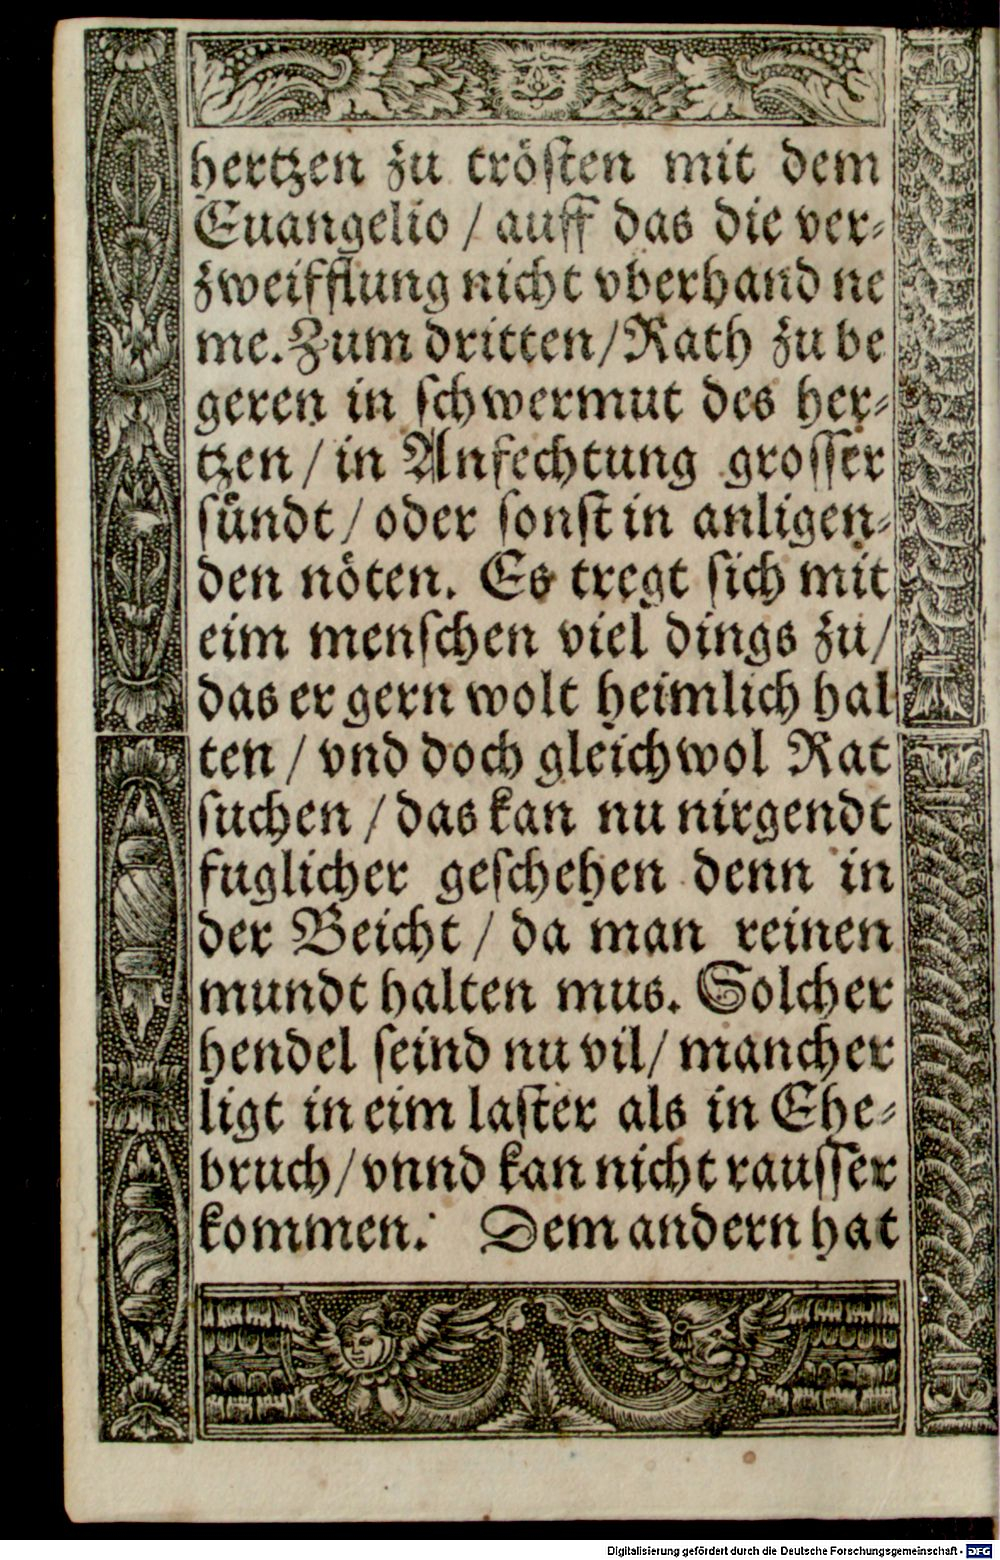 hertzen zu trösten mit dem
Euangelio / auff das die ver⸗
zweifflung nicht vberhand ne
me. Zum dritten / Rath zu be
geren in schwermut des her⸗
tzen / in Anfechtung grosser
sündt / oder sonst in anligen⸗
den nöten. Es tregt sich mit
eim menschen viel dings zu /
das er gern wolt heimlich hal
ten / vnd doch gleichwol Rat
suchen / das kan nu nirgendt
fuglicher geschehen denn in
der Beicht / da man reinen
mundt halten mus. Solcher
hendel seind nu vil / mancher
ligt in eim laster als in Ehe⸗
bruch / vnnd kan nicht rausser
kommen. Dem andern hat
Digitalisierung gefördert durch die Deutsche Forschungsgemeinschaft - DFG